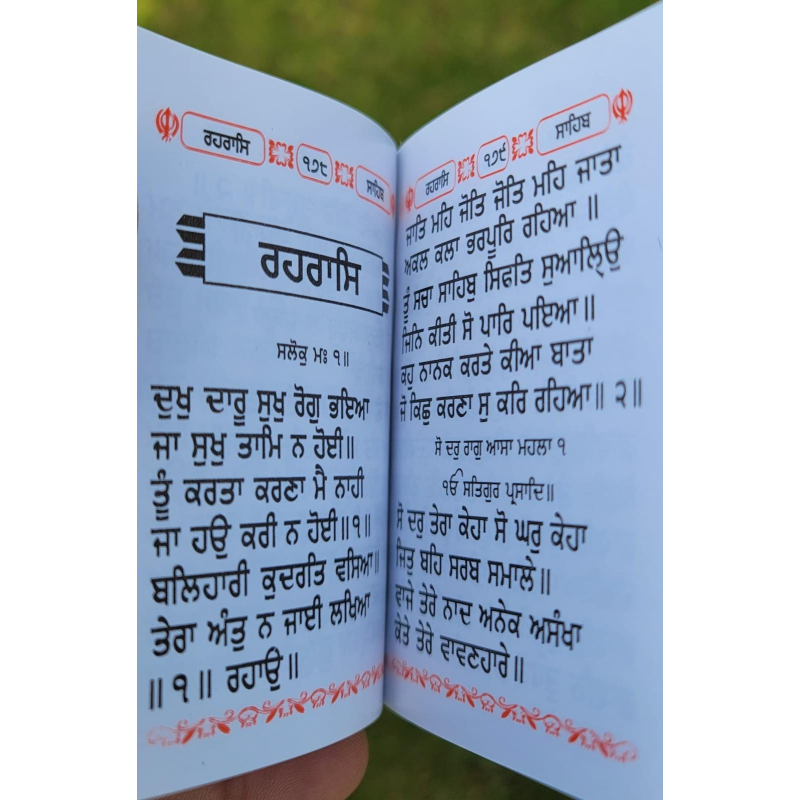 ਰਹਰਾਸਿ ੧੭੮ ਸਾਹਿਬ
ਰਹਰਾਸਿ
ਸਲੋਕੁ ਮਃ ੧॥
ਦੁਖੁ ਦਾਰੂ ਸੁਖੁ ਰੋਗੁ ਭਇਆ
ਜਾ ਸੁਖੁ ਤਾਮਿ ਨ ਹੋਈ॥
ਤੂੰ ਕਰਤਾ ਕਰਣਾ ਮੈ ਨਾਹੀ
ਜਾ ਹਉ ਕਰੀ ਨ ਹੋਈ॥੧॥
ਬਲਿਹਾਰੀ ਕੁਦਰਤਿ ਵਸਿਆ॥
ਤੇਰਾ ਅੰਤੁ ਨ ਜਾਈ ਲਖਿਆ
॥੧॥ ਰਹਾਉ॥
ਰਹਰਾਸਿ ੧੭੯ ਸਾਹਿਬ
ਜਾਤਿ ਮਹਿ ਜੋਤਿ ਜੋਤਿ ਮਹਿ ਜਾਤਾ
ਅਕਲ ਕਲਾ ਭਰਪੂਰਿ ਰਹਿਆ ॥
ਤੂੰ ਸਚਾ ਸਾਹਿਬੁ ਸਿਫਤਿ ਸੁਆਲਿ੍ਉ
ਜਿਨਿ ਕੀਤੀ ਸੋ ਪਾਰਿ ਪਇਆ॥
ਕਹੁ ਨਾਨਕ ਕਰਤੇ ਕੀਆ ਬਾਤਾ
ਜੋ ਕਿਛੁ ਕਰਣਾ ਸੁ ਕਰਿ ਰਹਿਆ॥ ੨॥
ਸੋ ਦਰੁ ਰਾਗੁ ਆਸਾ ਮਹਲਾ ੧
ੴ ਸਤਿਗੁਰ ਪ੍ਰਸਾਦਿ॥
ਸੋ ਦਰੁ ਤੇਰਾ ਕੇਹਾ ਸੋ ਘਰੁ ਕੇਹਾ
ਜਿਤੁ ਬਹਿ ਸਰਬ ਸਮਾਲੇ॥
ਵਾਜੇ ਤੇਰੇ ਨਾਦ ਅਨੇਕ ਅਸੰਖਾ
ਕੇਤੇ ਤੇਰੇ ਵਾਵਣਹਾਰੇ॥